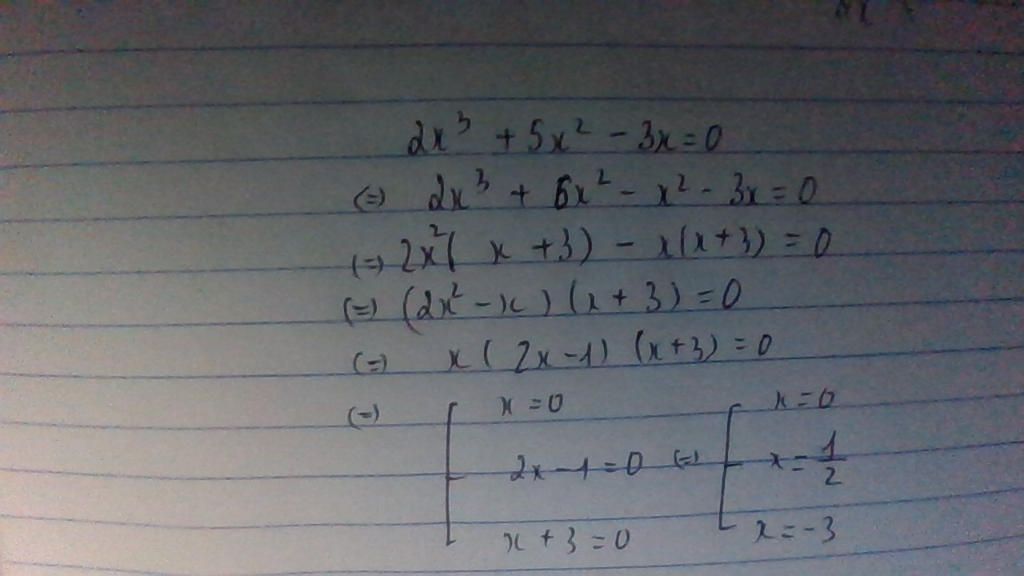 2x³ + 5x² - 3x = 0
(=) 2x³ + 6x² - x² - 3x = 0
(=) 2x²( x + 3) - x(x + 3) = 0
(=) (2x² - x) (x + 3) = 0
(=) x ( 2x - 1) (x + 3) = 0
(=) [ x = 0 [ x = 0
2x - 1 = 0 (=) x = 1/2
x + 3 = 0 x = -3